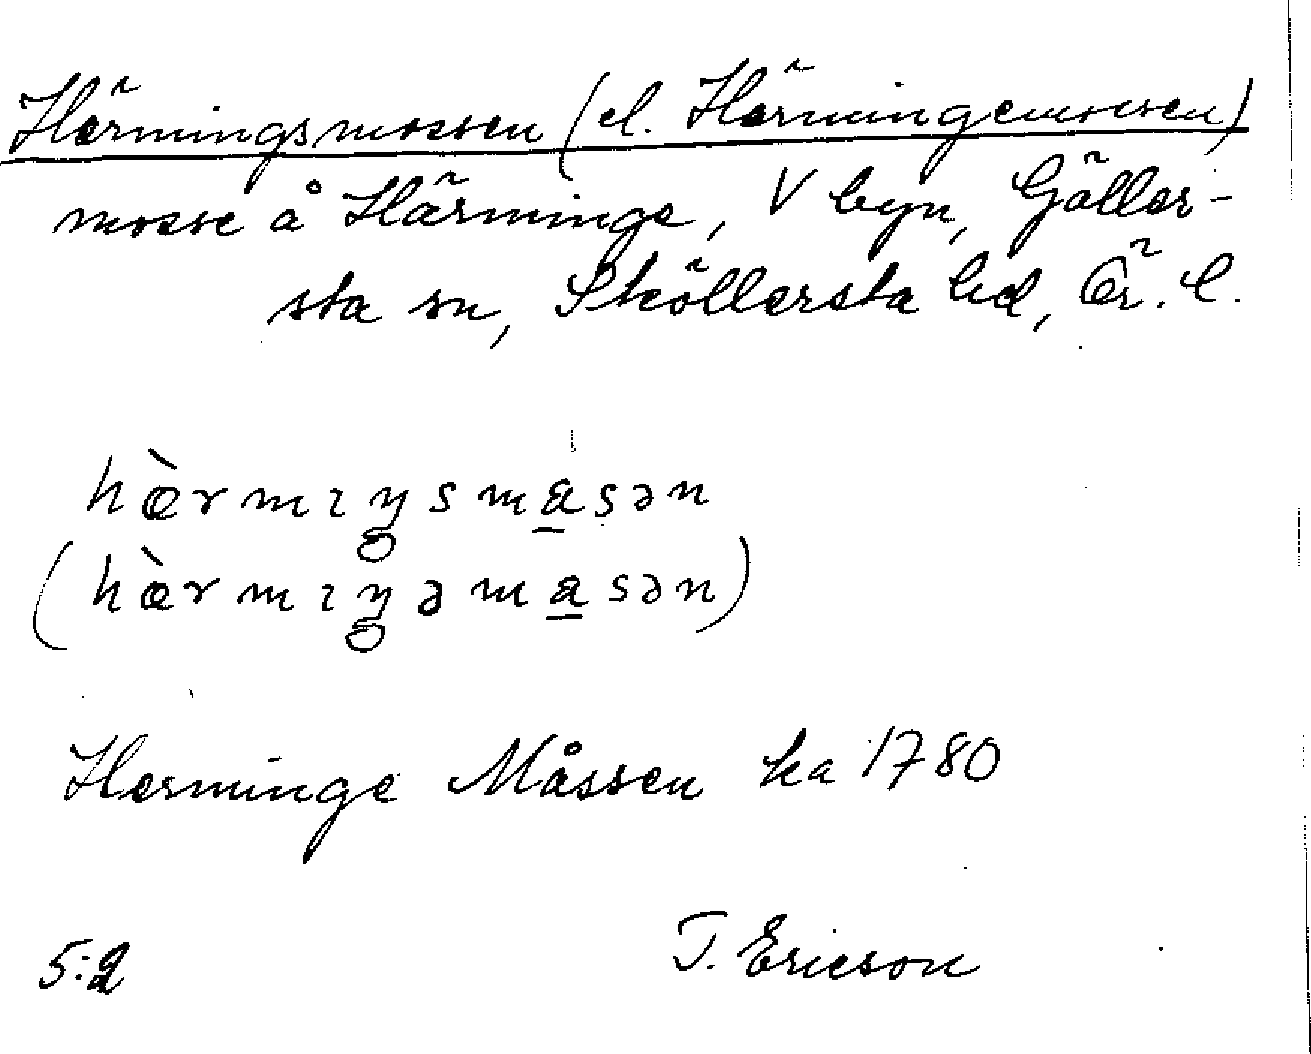 Härmingsmossen (el. Härmingemossen)
mosse å Härminge, V byn, Gäller-
sta sn, Sköllersta hd, Ör. l.
hæ̀rmıŋsmasən
(hæ̀rmıŋəmasən)
Herminge Måssen ka 1780
5:2
T. Ericson